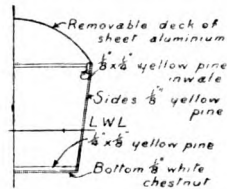 Removable deck of
sheet aluminium
1/8" x 1/4" yellow pine
inwale
Sides 1/8" yellow
pine
LWL
1/4" x 1/8" yellow pine
Bottom 1/8" white
chestnut